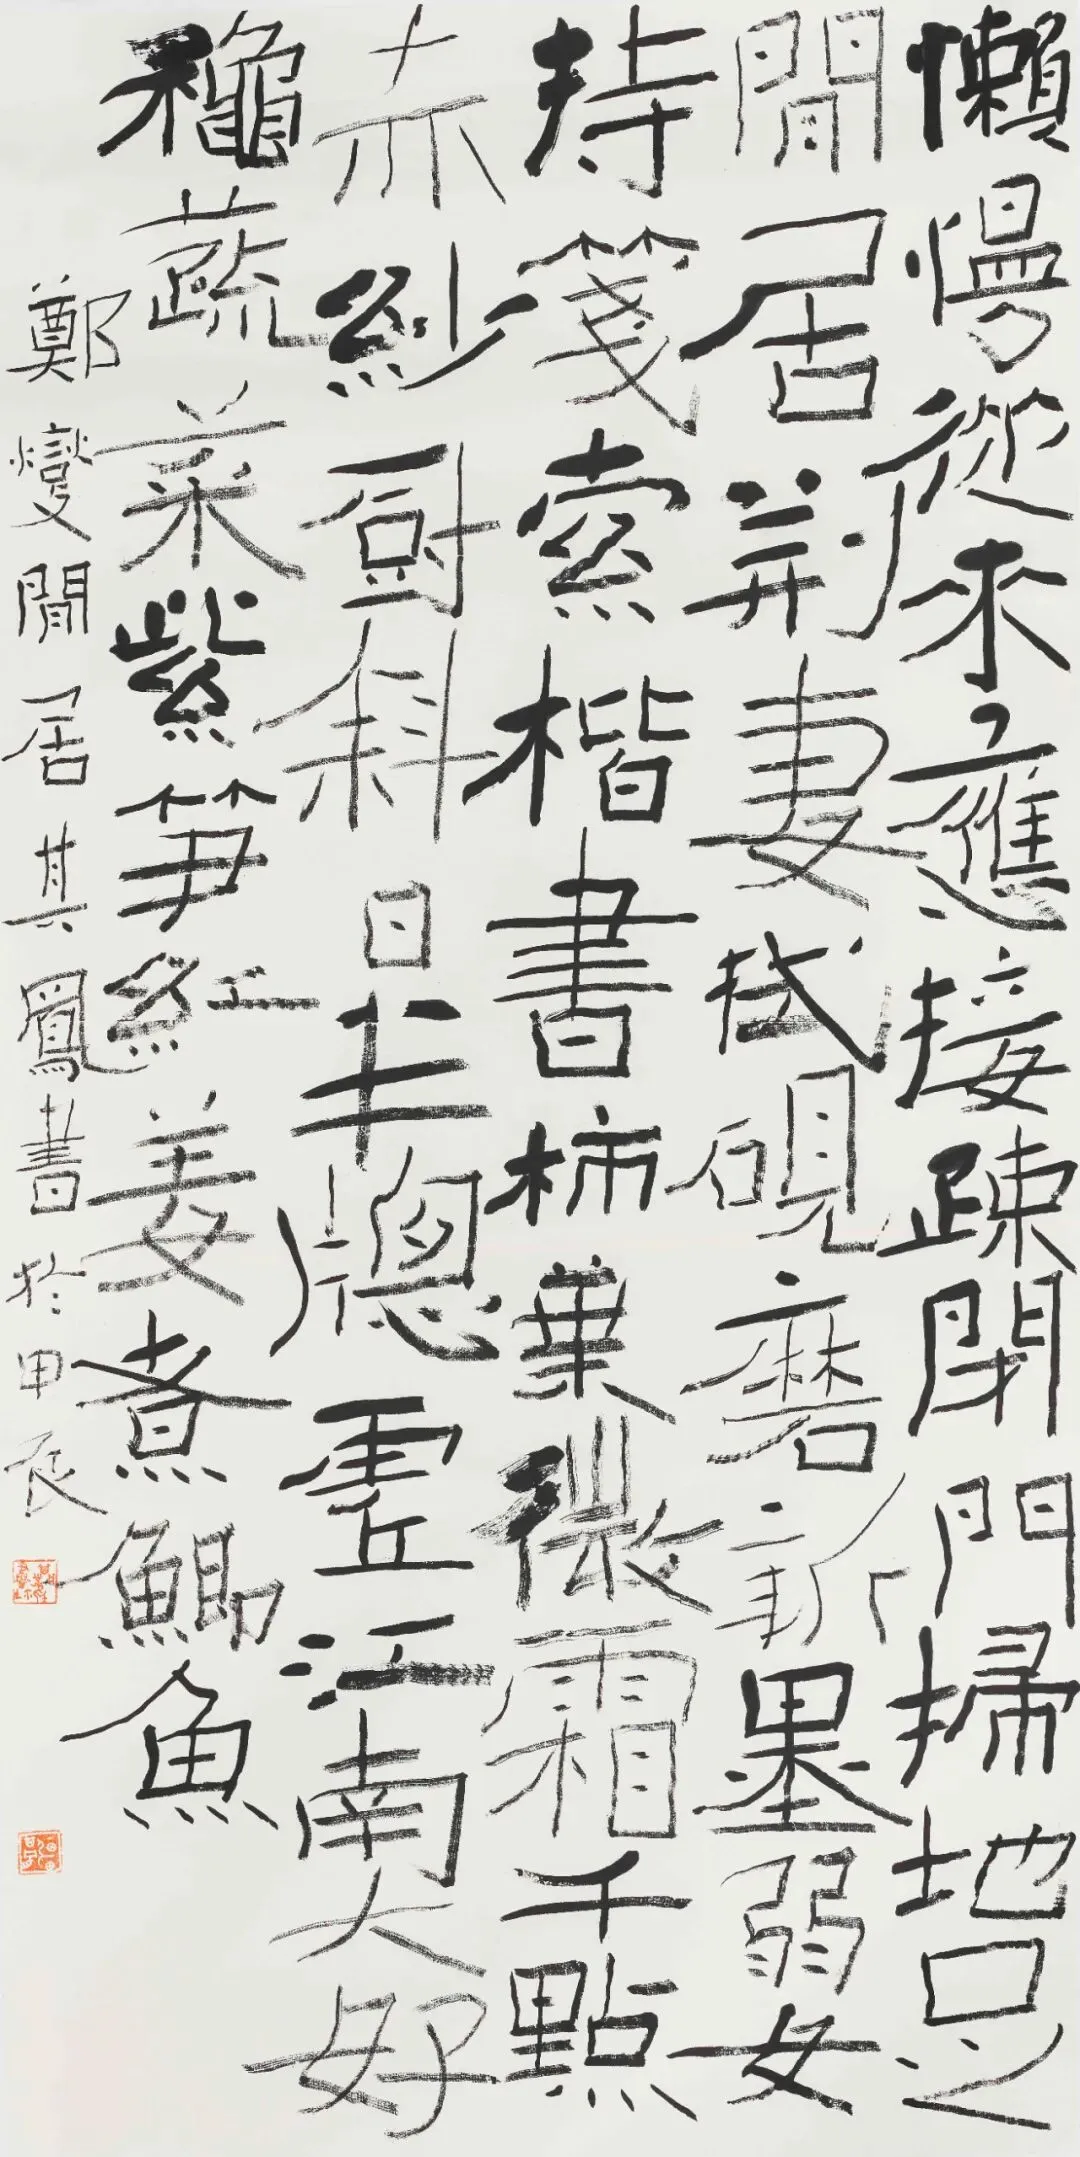 懶慢從來應接疎閉門掃地足
閒居荊妻拭硯磨新墨弱女
持箋索楷書柿葉微霜千點
赤紗厨斜日半牕虛江南大好
龝蔬菜紫笋紅姜煮鯽魚
鄭燮閒居其鳳書於甲辰